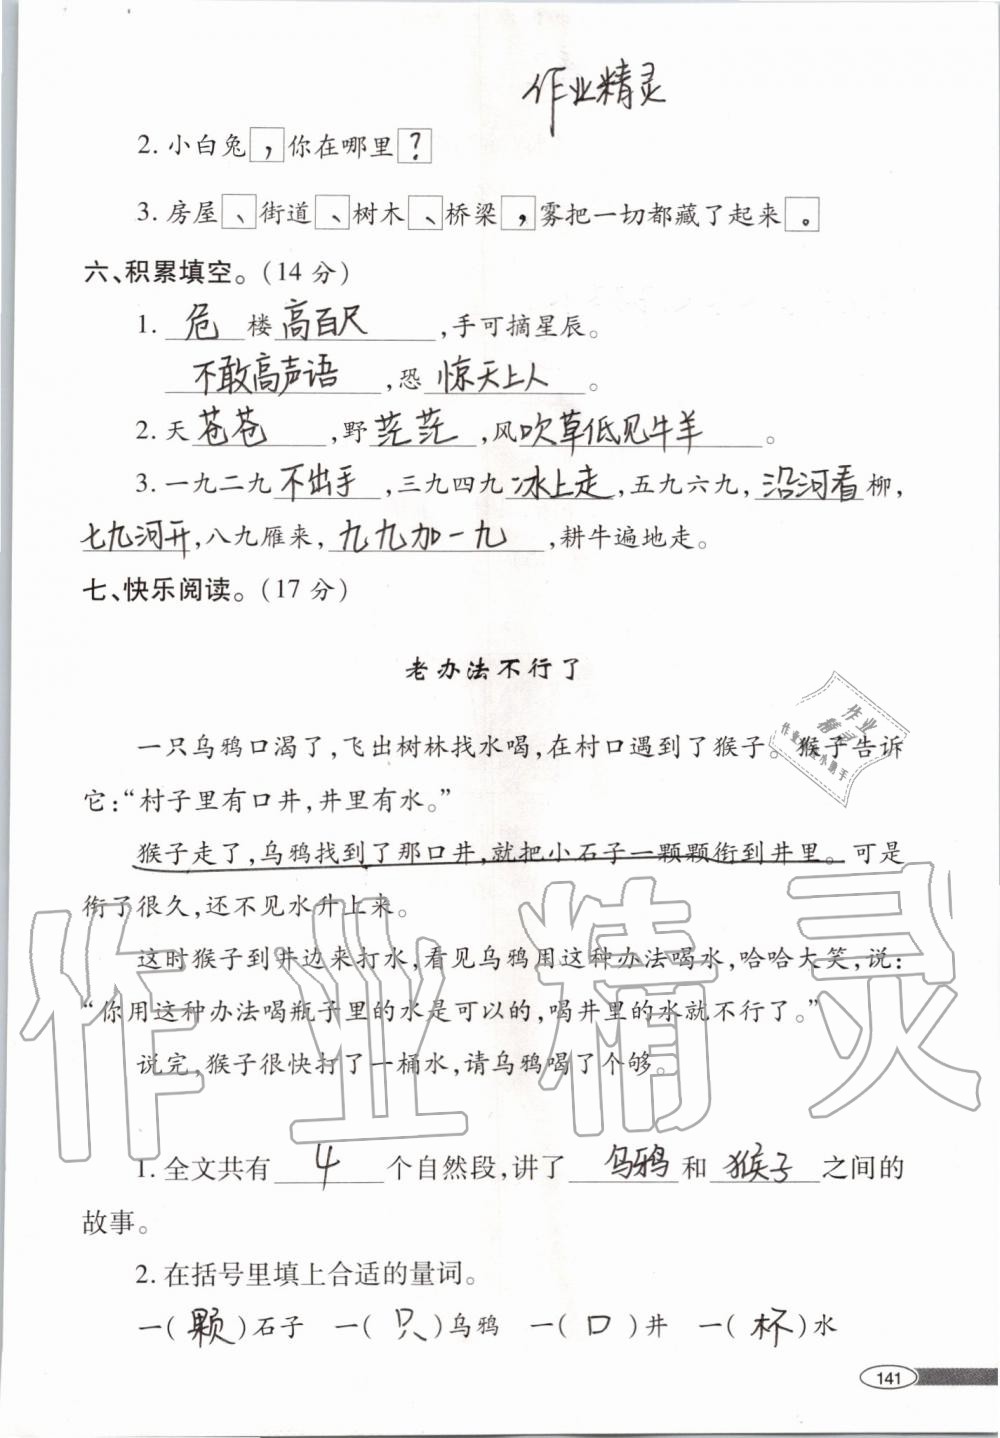 作业精灵
2. 小白兔，你在哪里？
3. 房屋、街道、树木、桥梁，雾把一切都藏了起来。
六、积累填空。（14 分）
1. 危楼高百尺，手可摘星辰。
不敢高声语，恐惊天上人。
2. 天苍苍，野茫茫，风吹草低见牛羊。
3. 一九二九不出手，三九四九冰上走，五九六九，沿河看柳，
七九河开，八九雁来，九九加一九，耕牛遍地走。
七、快乐阅读。（17 分）
老办法不行了
一只乌鸦口渴了，飞出树林找水喝，在村口遇到了猴子。猴子告诉
它：“村子里有口井，井里有水。”
猴子走了，乌鸦找到了那口井，就把小石子一颗颗衔到井里。可是
衔了很久，还不见水升上来。
这时猴子到井边来打水，看见乌鸦用这种办法喝水，哈哈大笑，说：
“你用这种办法喝瓶子里的水是可以的，喝井里的水就不行了。”
说完，猴子很快打了一桶水，请乌鸦喝了个够。
1. 全文共有 4 个自然段，讲了 乌鸦 和 猴子 之间的
故事。
2. 在括号里填上合适的量词。
一（颗）石子 一（只）乌鸦 一（口）井 一（杯）水
141
作业
精灵
作业精灵